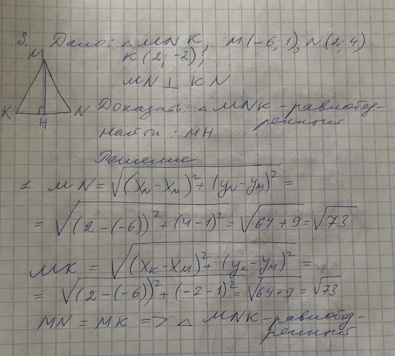 3. Дано: △MNK, M(-6;1), N(2;4)
K(2;-2);
MN ⊥ KN
M
K H N
Доказать: △MNK - равнобед-
ренный
Найти: MH
Решение
1. MN = √((xN-xM)²+(yN-yM)²) =
= √((2-(-6))²+(4-1)²) = √(64+9) = √73
MK = √((xK-xM)²+(yK-yM)²) =
= √((2-(-6))²+(-2-1)²) = √(64+9) = √73
MN = MK => △ MNK-равнобед-
ренный